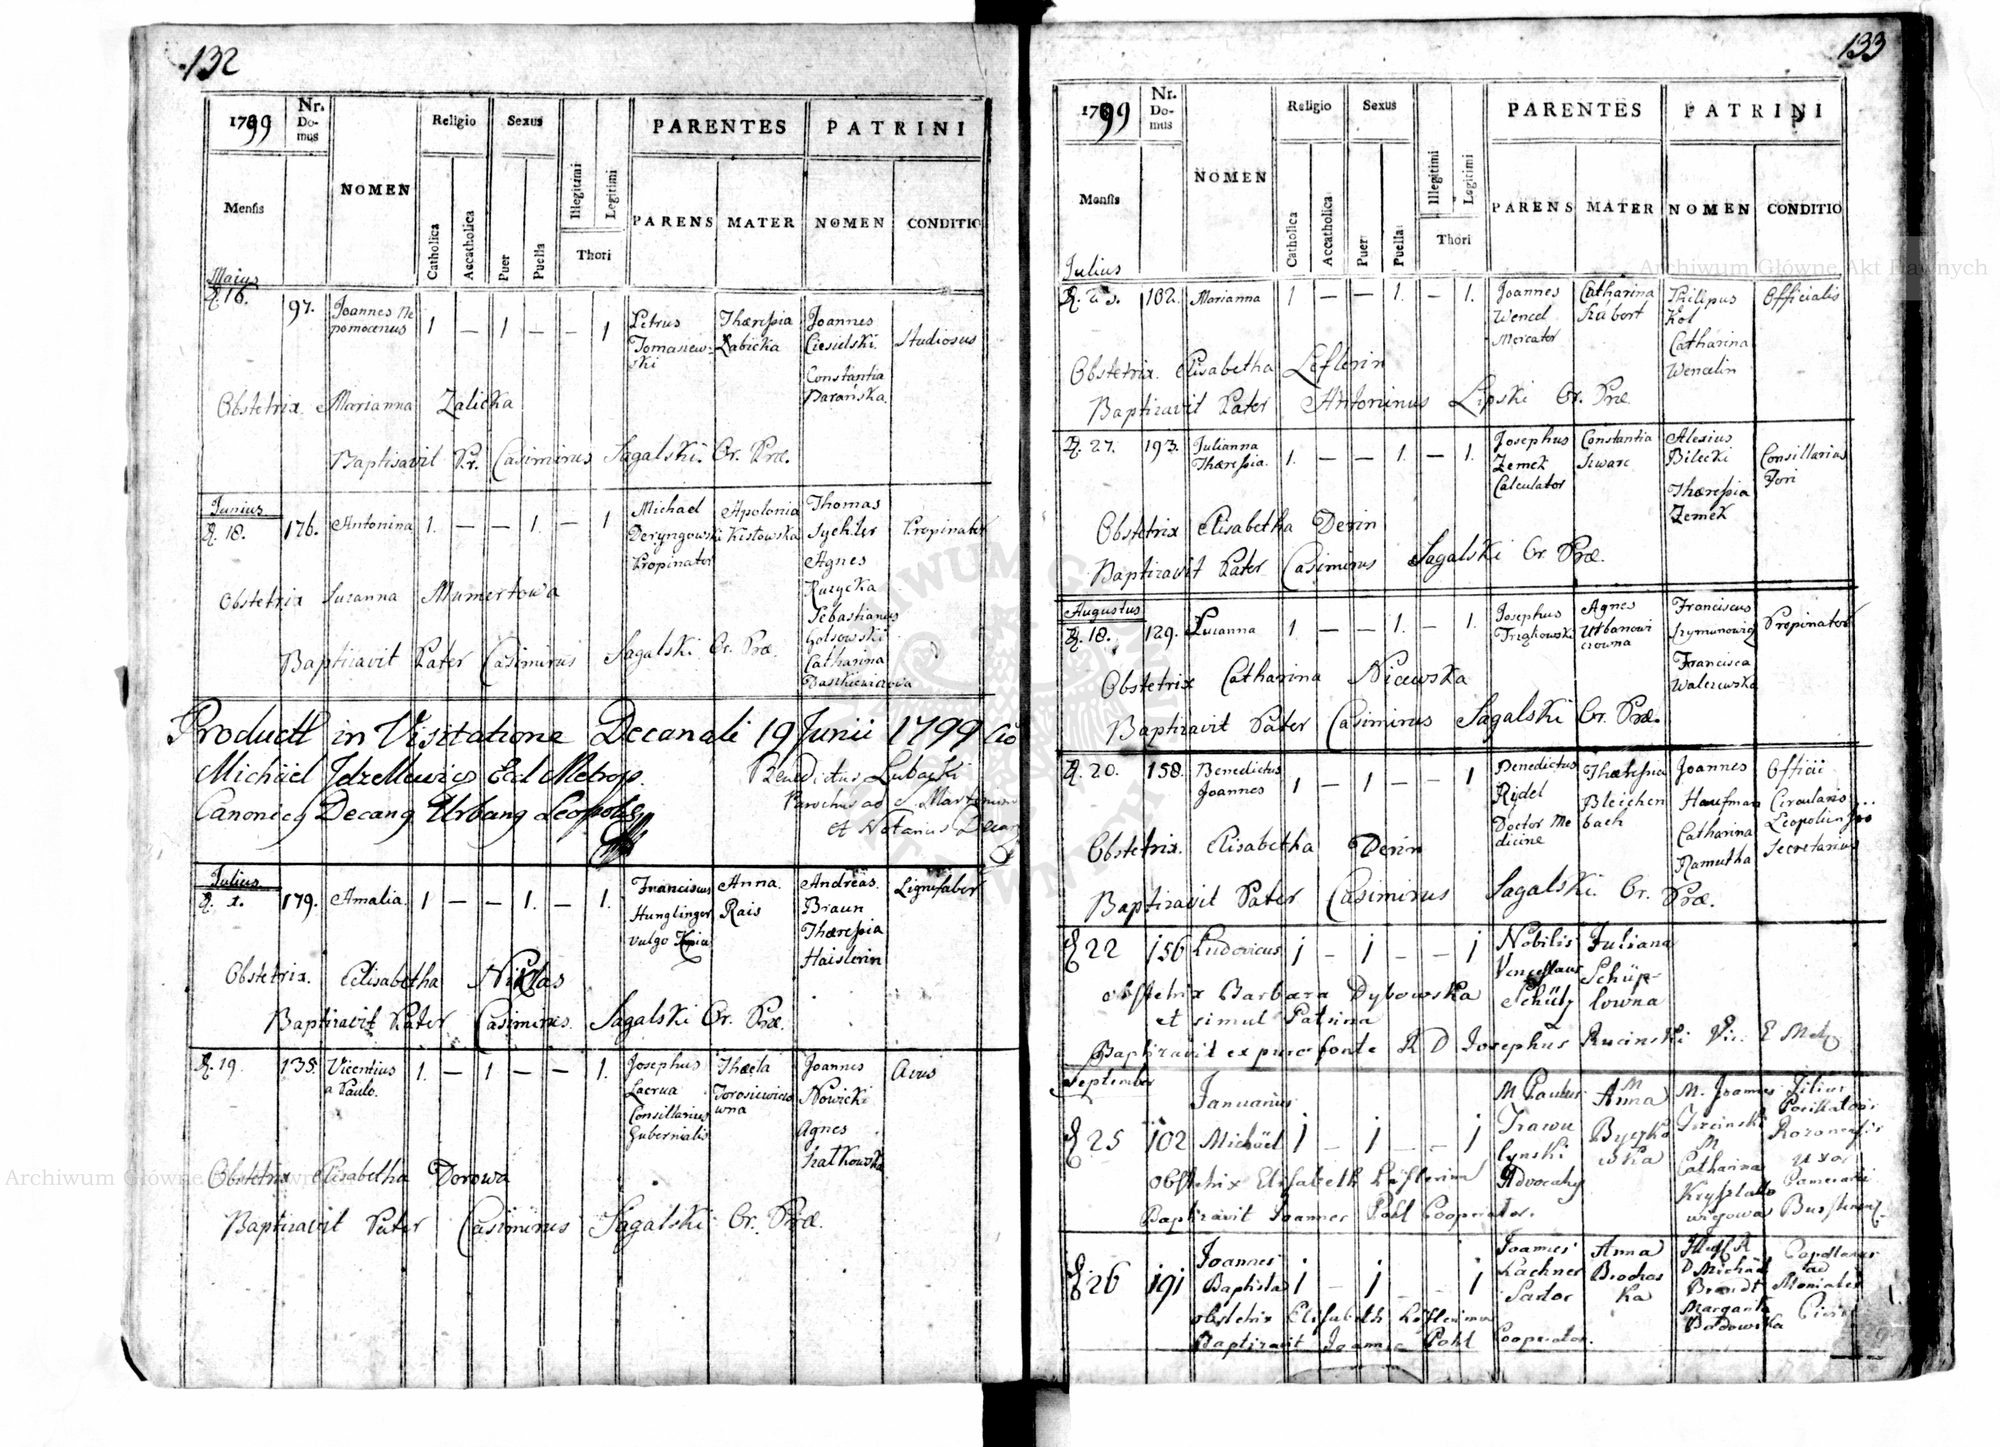 132
1799
Nr. Domus
NOMEN
Religio
Sexus
PARENTES
PATRINI
Mensis
Catholica
Accatholica
Puer
Puella
Illegitimi
Legitimi
Thori
PARENS
MATER
NOMEN
CONDITIO
Majus
D. 16.
97.
Joannes Ne
pomocenus
1
—
1
—
—
1
Petrus
Tomasiew-
ski
Theressia
Labicka
Joannes
Ciesielski
Constantia
Barańska
Studiosus
Obstetrix Marianna Zalicka
Baptisavit Pr. Casimirus Sagalski Or. Præ.
Junius
D. 18.
176.
Antonina
1.
—
—
1.
—
1
Michael
Deryngowski
Propinator
Apolonia
Kistowska
Thomas
Sychter
Agnes
Ruzycka
Sebastianus
Golsowski
Catharina
Baszkiewiczowa
Propinator
Obstetrix Suzanna Mumertowa
Baptizavit Pater Casimirus Sagalski Or. Præ.
in Visitatione Decanali 19 Junii 1799
Benedictus Lubaski
Parochus ad S. Martinum
et Notarius
Julius
D. 1.
179.
Amalia.
1
—
—
1.
—
1.
Franciscus
Hunglinger
vulgo
Anna.
Rais
Andreas.
Braun
Theressia
Haislerin
Lignifaber
Obstetrix. Elisabetha Niklas
Baptizavit Pater Casimirus. Sagalski Or. Præ.
D. 19.
135.
Vicentius
a Paulo.
1.
—
1
—
—
1.
Josephus
Lacrua
Consillarius
Gubernialis
Thecla
Torosiewiczo
wna
Joannes
Nowicki
Agnes
Szatkowska
Avus
Obstetrix Elisabetha Dorowa
Baptizavit Pater Casimirus Sagalski Or. Præ.
133
1799
Nr. Domus
NOMEN
Religio
Sexus
PARENTES
PATRINI
Mensis
Catholica
Accatholica
Puer
Puella
Illegitimi
Legitimi
Thori
PARENS
MATER
NOMEN
CONDITIO
Julius
102.
Marianna
1
—
—
1.
—
1.
Joannes
Wencel
Mercator
Catharina
Philipus
Kol
Catharina
Wencelin
Officialis
Obstetrix. Elisabetha Leflerin
Baptizavit Pater Antoninus Lipski Or. Præ
D. 27.
193.
Julianna
Theressia.
1.
—
—
1.
—
1.
Josephus
Zemek
Calculator
Constantia
Szwarc
Alexius
Bilecki
Theressia
Zemek
Consillarius
Fori
Obstetrix Elisabetha Derin
Baptizavit Pater Casimirus Sagalski Or. Præ.
Augustus
D. 18.
129.
Luzanna
1.
—
—
1.
—
1.
Josephus
Agnes
Urbanowi
czowna
Franciscus
Szymunowicz
Francisca
Walczewska
Propinator
Obstetrix Catharina Nicewska
Baptizavit Pater Casimirus Sagalski Or. Præ.
D. 20.
158.
Benedictus
Joannes
1
—
1
—
—
1
Benedictus
Ridel
Doctor Me
dicine
Theressia
Bleichen
bach
Joannes
Haufman
Catharina
Ramutha
Officii
Circularis
Secretarius
Obstetrix. Elisabetha Derin
Baptizavit Pater Casimirus Sagalski. Or. Præ.
D 22
156
Ludovicus
1
—
1
—
—
1
Nobilis
Venceslaus
Schütz
Juliana
Schüp-
lowna
obstetrix Barbara Dybowska
et simul Patrina
Baptizavit ex puro fonte R D Josephus Rucinski Vic. E Met
September
D 25
102
Januarius
Michael
1
—
1
—
—
1
M Paulus
Trawu
lynski
Advocatus
M
Anna
M. Joannes
M
Catharina
Filius
Uxor
Camerarii
obstetrix Elisabeth Löflerina
Baptizavit Joannes Pohl Cooperator.
D 26
191
Joannes
Baptista
1
—
1
—
—
1
Joannes
Kachner
Sartor
Anna
Brochas
ka
D Michael
Brandt
Margarita
Bordowska
Capellanus
ad
Moniales
obstetrix Elisabeth Löflerina
Baptizavit Joannes Pohl Cooperator.
Archiwum Główne Akt Dawnych
Archiwum Główne Akt Dawnych